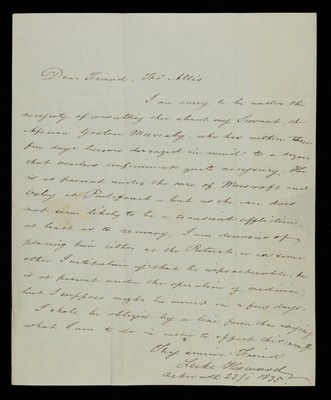 Dear Friend, Thos Allis
I am sorry to be under the
necessity of consulting thee about my Servant, the
African
few days become deranged in mind, to a degree
that renders confinement quite necessary. He
is at present under the care of Muscroft and
Oxley at Pontefract – but as the case does
not seem likely to be a transient affliction
at least as to recovery, I am desirous of
placing him either at the Retreat or in some
other Institution if that be impracticable: he
is at present under the operation of medicine,
but I suppose might be moved in a few days.
I shall be obliged by a line from thee saying
what I am to do in order to effect this removal
Thy sincere Friend
Luke Howard
Ackworth 23/1 1835